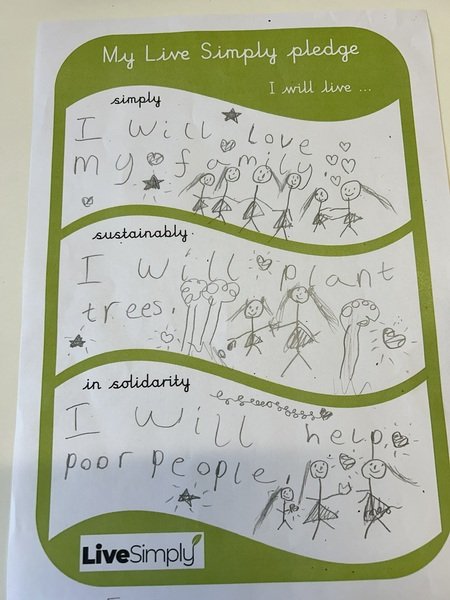 My Live Simply pledge
I will live ...
simply
I will love
my family.
sustainably
I will plant
trees.
in solidarity
I will help
poor people.
LiveSimply